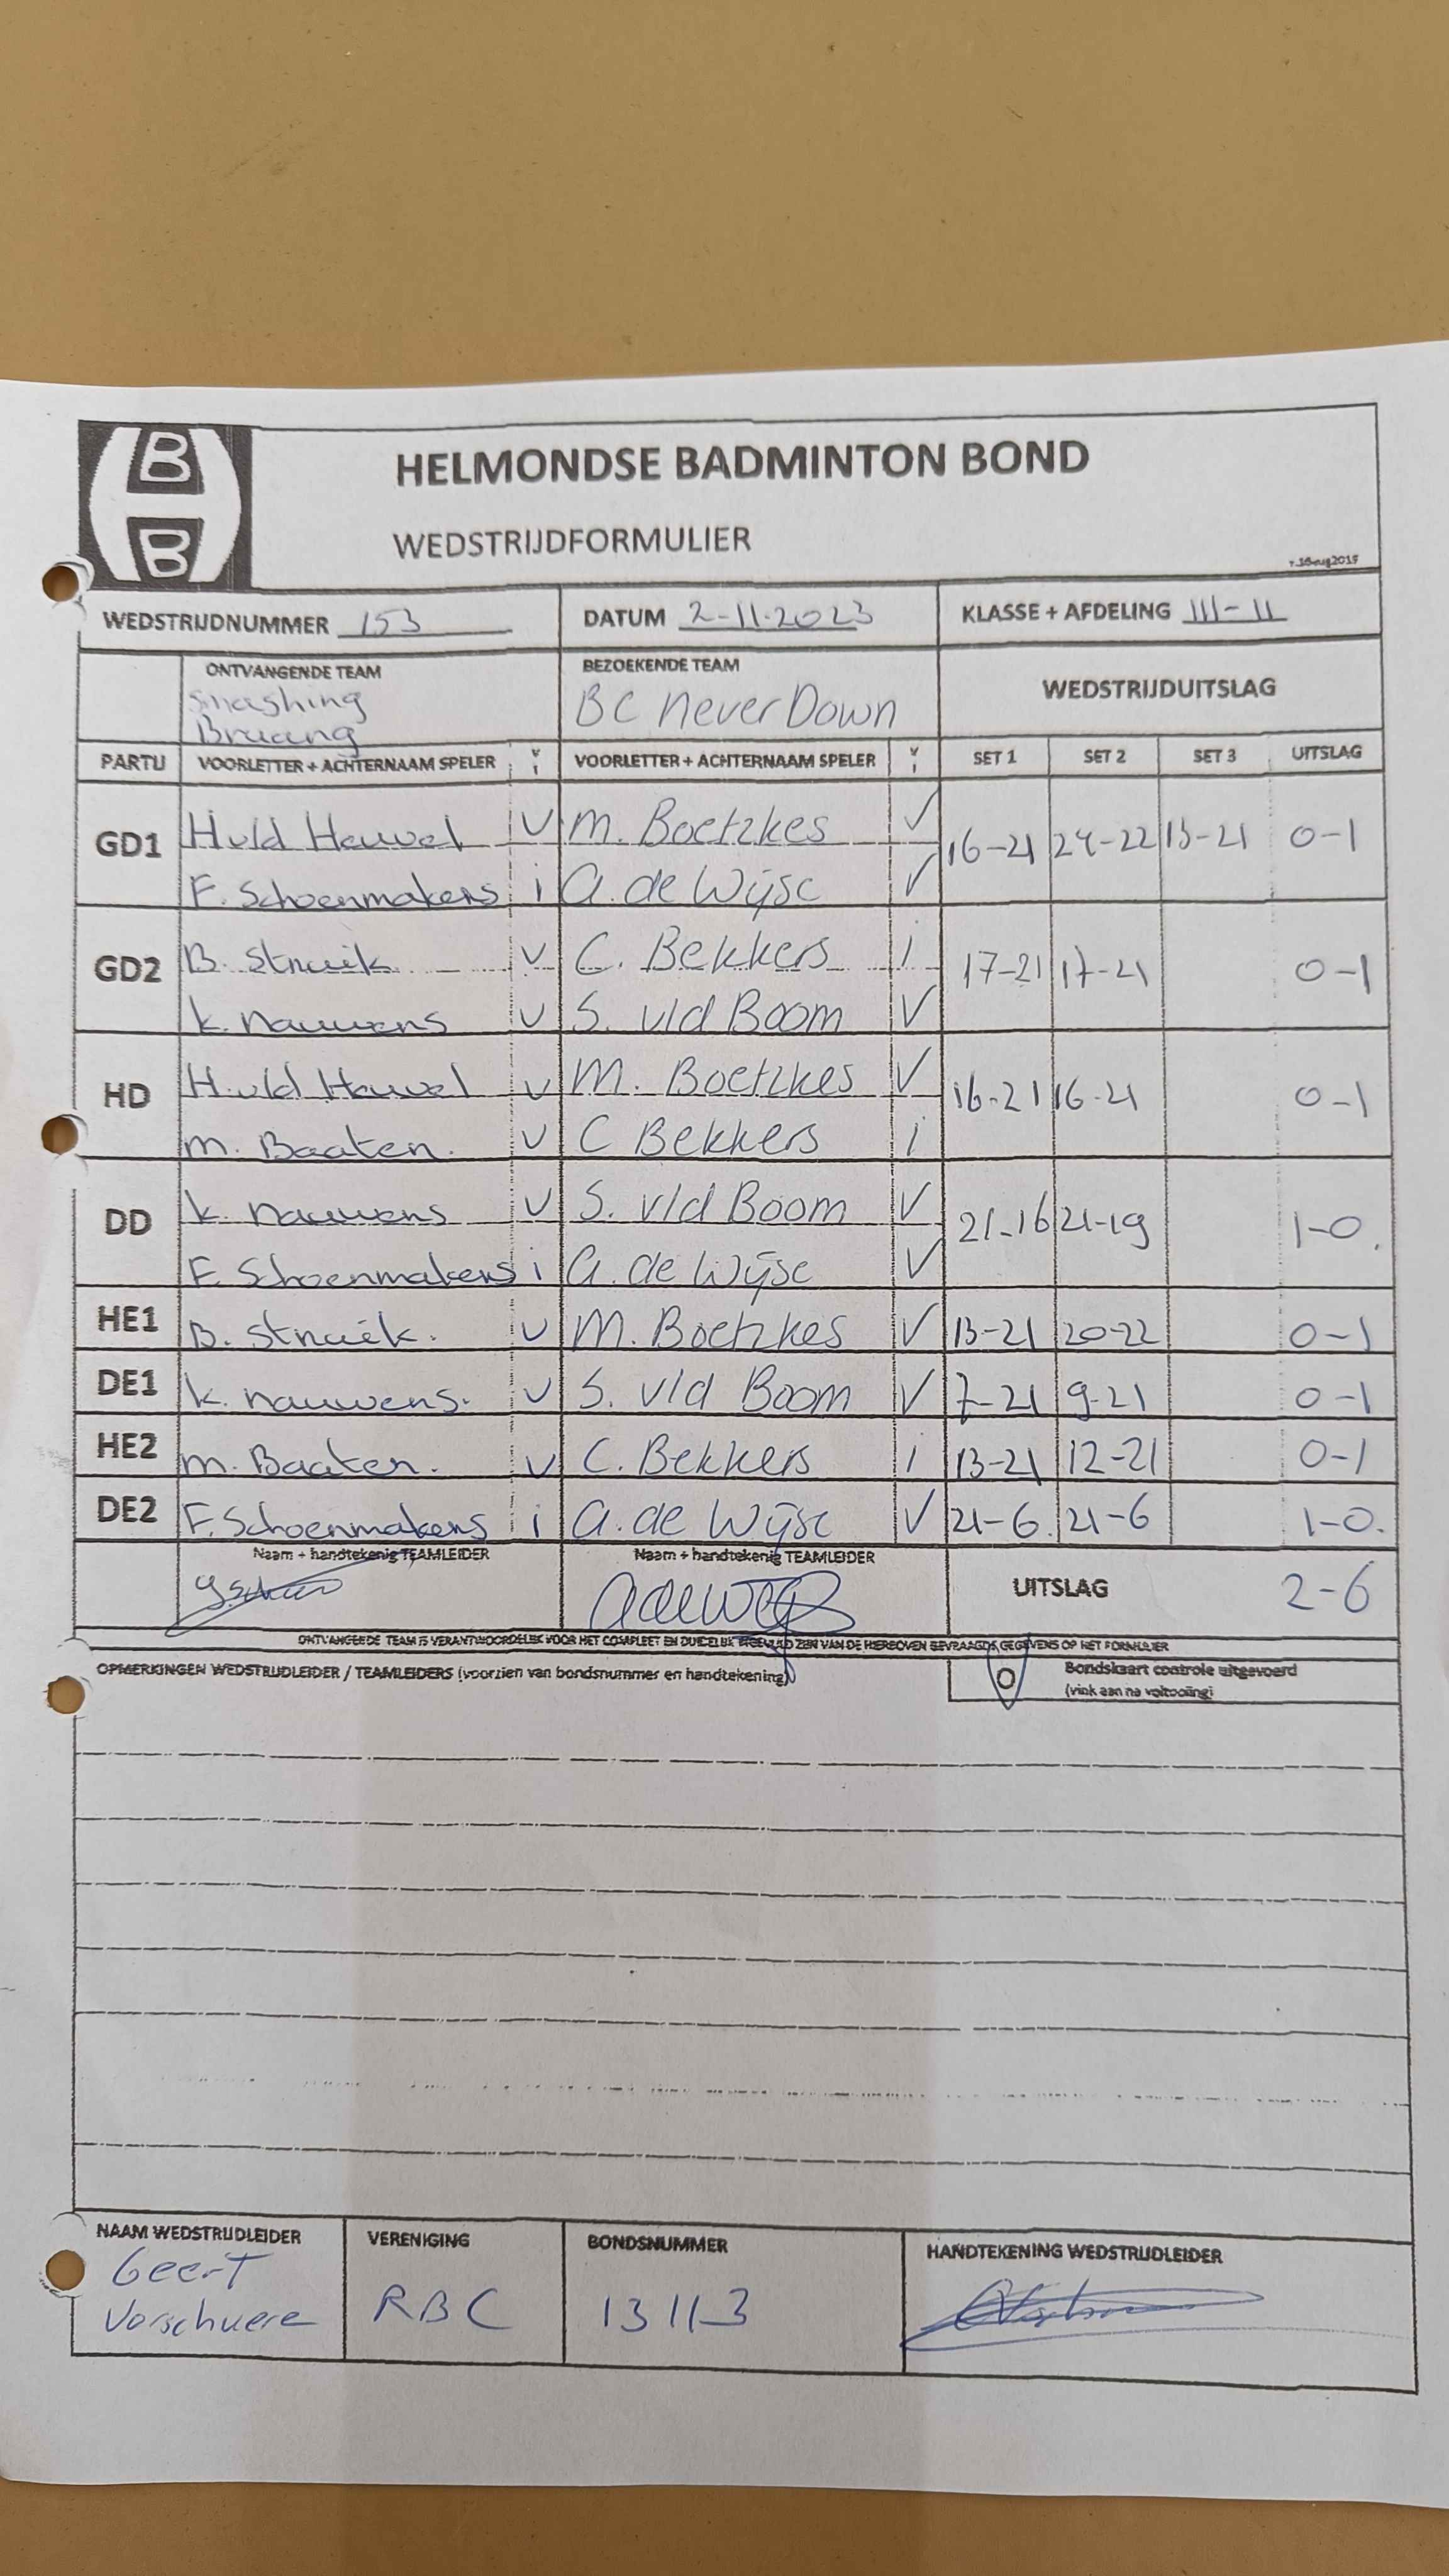 HELMONDSE BADMINTON BOND
WEDSTRIJDFORMULIER
v.16aug2015
WEDSTRIJDNUMMER 153 DATUM 2-11-2023 KLASSE + AFDELING III-II
ONTVANGENDE TEAM BEZOEKENDE TEAM WEDSTRIJDUITSLAG
Smashing BC Never Down
PARTIJ VOORLETTER + ACHTERNAAM SPELER V I VOORLETTER + ACHTERNAAM SPELER V I SET 1 SET 2 SET 3 UITSLAG
GD1 H vld Heuvel v M. Boetzkes V 16-21 24-22 13-21 0-1
F. Schoenmakers i A. de Wijse V
GD2 B. Struik v C. Bekkers i 17-21 17-21 0-1
K. Nauwens v S. v/d Boom V
HD H. vld Heuvel v M. Boetzkes V 16-21 16-21 0-1
M. Baaten. v C Bekkers i
DD K. Nauwens v S. v/d Boom V 21-16 21-19 1-0.
F. Schoenmakers i A. de Wijse V
HE1 B. Struik. v M. Boetzkes V 13-21 20-22 0-1
DE1 K. Nauwens. v S. v/d Boom V 7-21 9-21 0-1
HE2 M. Baaten. v C. Bekkers i 13-21 12-21 0-1
DE2 F. Schoenmakers i A. de Wijse V 21-6. 21-6 1-0.
Naam + handtekenig TEAMLEIDER Naam + handtekenig TEAMLEIDER UITSLAG 2-6
ONTVANGENDE TEAM IS VERANTWOORDELIJK VOOR HET COMPLEET EN DUIDELIJK INGEVULD ZIJN VAN DE HIERBOVEN GEVRAAGDE GEGEVENS OP HET FORMULIER
OPMERKINGEN WEDSTRIJDLEIDER / TEAMLEIDERS (voorzien van bondsnummer en handtekening) Bondskaart controle uitgevoerd
(vink aan na voltooiing)
NAAM WEDSTRIJDLEIDER VERENIGING BONDSNUMMER HANDTEKENING WEDSTRIJDLEIDER
Geert RBC 13113
Verschuere